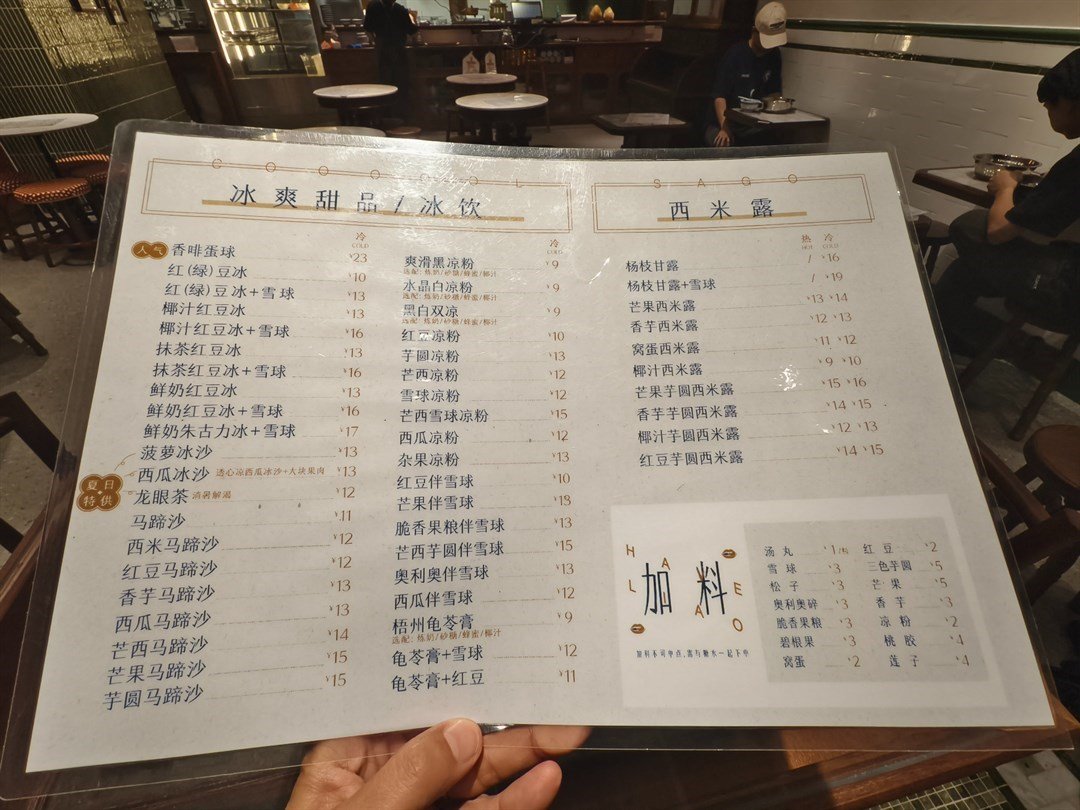 COOOOOL
冰爽甜品/冰饮
冷
COLD
人气 香啡蛋球 ¥23
红(绿)豆冰 ¥10
红(绿)豆冰+雪球 ¥13
椰汁红豆冰 ¥13
椰汁红豆冰+雪球 ¥16
抹茶红豆冰 ¥13
抹茶红豆冰+雪球 ¥16
鲜奶红豆冰 ¥13
鲜奶红豆冰+雪球 ¥16
鲜奶朱古力冰+雪球 ¥17
菠萝冰沙 ¥13
夏日特供
西瓜冰沙 透心凉西瓜冰沙+大块果肉 ¥13
龙眼茶 消暑解渴 ¥12
马蹄沙 ¥11
西米马蹄沙 ¥12
红豆马蹄沙 ¥12
香芋马蹄沙 ¥13
西瓜马蹄沙 ¥13
芒西马蹄沙 ¥14
芒果马蹄沙 ¥15
芋圆马蹄沙 ¥15
冷
COLD
爽滑黑凉粉 ¥9
选配: 炼奶/砂糖/蜂蜜/椰汁
水晶白凉粉 ¥9
选配: 炼奶/砂糖/蜂蜜/椰汁
黑白双凉 ¥9
选配: 炼奶/砂糖/蜂蜜/椰汁
红豆凉粉 ¥10
芋圆凉粉 ¥13
芒西凉粉 ¥12
雪球凉粉 ¥12
芒西雪球凉粉 ¥15
西瓜凉粉 ¥12
杂果凉粉 ¥13
红豆伴雪球 ¥10
芒果伴雪球
脆香果粮伴雪球 ¥13
芒西芋圆伴雪球 ¥15
奥利奥伴雪球 ¥13
西瓜伴雪球 ¥12
梧州龟苓膏 ¥9
选配: 炼奶/砂糖/蜂蜜/椰汁
龟苓膏+雪球 ¥12
龟苓膏+红豆 ¥11
SAGO
西米露
热 冷
HOT COLD
杨枝甘露 / ¥16
杨枝甘露+雪球 / ¥19
芒果西米露 ¥13 ¥14
香芋西米露 ¥12 ¥13
窝蛋西米露 ¥11 ¥12
椰汁西米露 ¥9 ¥10
芒果芋圆西米露 ¥15 ¥16
香芋芋圆西米露 ¥14 ¥15
椰汁芋圆西米露 ¥12 ¥13
红豆芋圆西米露 ¥14 ¥15
加料
加料不可单点,需与糖水一起下单
汤丸 ¥1/粒 红豆 ¥2
雪球 ¥3 三色芋圆 ¥5
松子 ¥3 芒果 ¥5
奥利奥碎 ¥3 香芋 ¥3
脆香果粮 ¥3 凉粉 ¥2
碧根果 ¥3 桃胶 ¥4
窝蛋 ¥2 莲子 ¥4